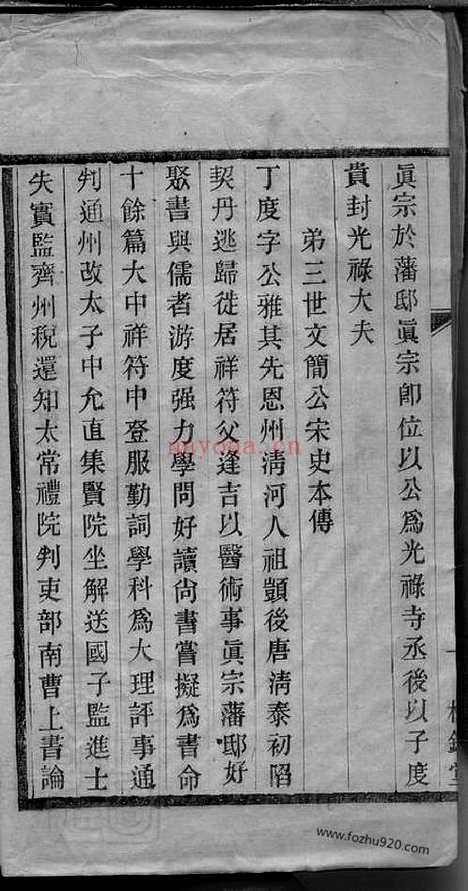 眞宗於藩邸眞宗卽位以公爲光祿寺丞後以子度
貴封光祿大夫
弟三世文簡公宋史本傳
丁度字公雅其先恩州淸河人祖顗後唐淸泰初陷
契丹逃歸徙居祥符父逢吉以醫術事眞宗藩邸好
聚書與儒者游度强力學問好讀尙書嘗擬爲書命
十餘篇大中祥符中登服勤詞學科爲大理評事通
判通州改太子中允直集賢院坐解送國子監進士
失實監齊州稅還知太常禮院判吏部南曹上書論
nayona.cn
www.fozhu920.com